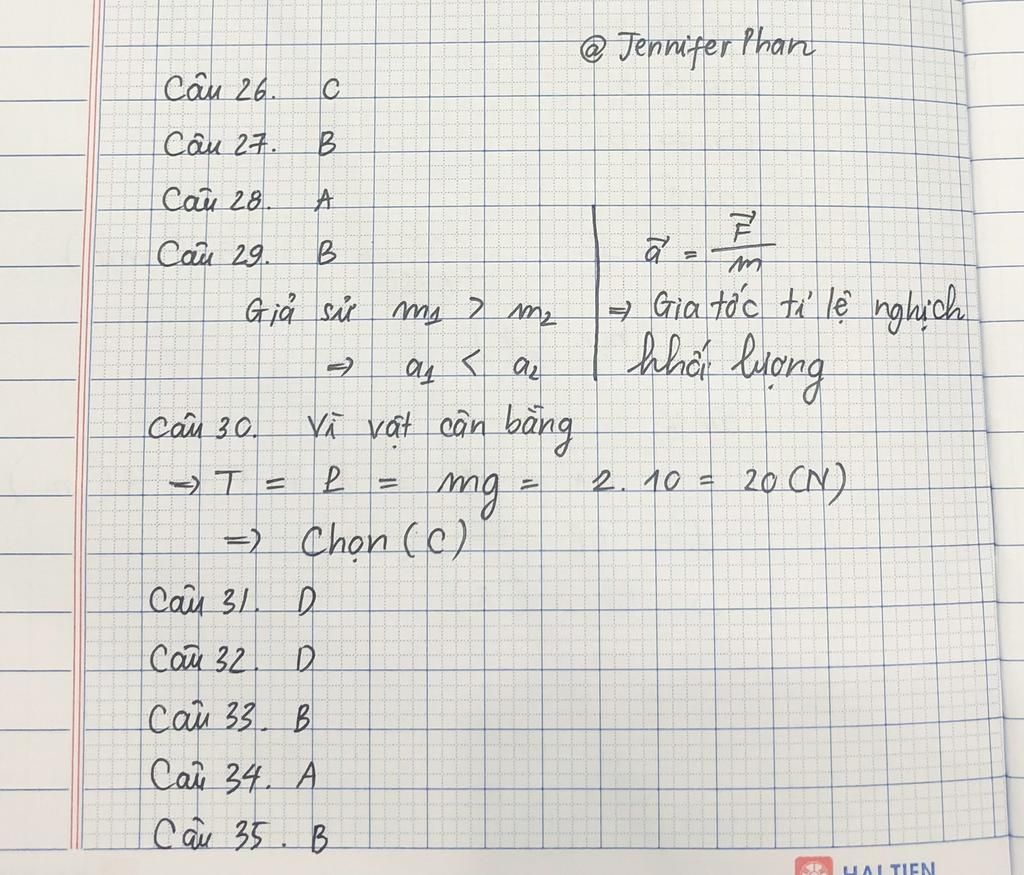 @ Jennifer Phan
Câu 26. C
Câu 27. B
Câu 28. A
Câu 29. B
Giả sử m₁ > m₂
=> a₁ < a₂
a⃗ = F⃗ / m
=> Gia tốc tỉ lệ nghịch
khối lượng
Câu 30. Vì vật cân bằng
=> T = P = mg = 2.10 = 20 (N)
=> Chọn (C)
Câu 31. D
Câu 32. D
Câu 33. B
Câu 34. A
Câu 35. B
HẢI TIẾN